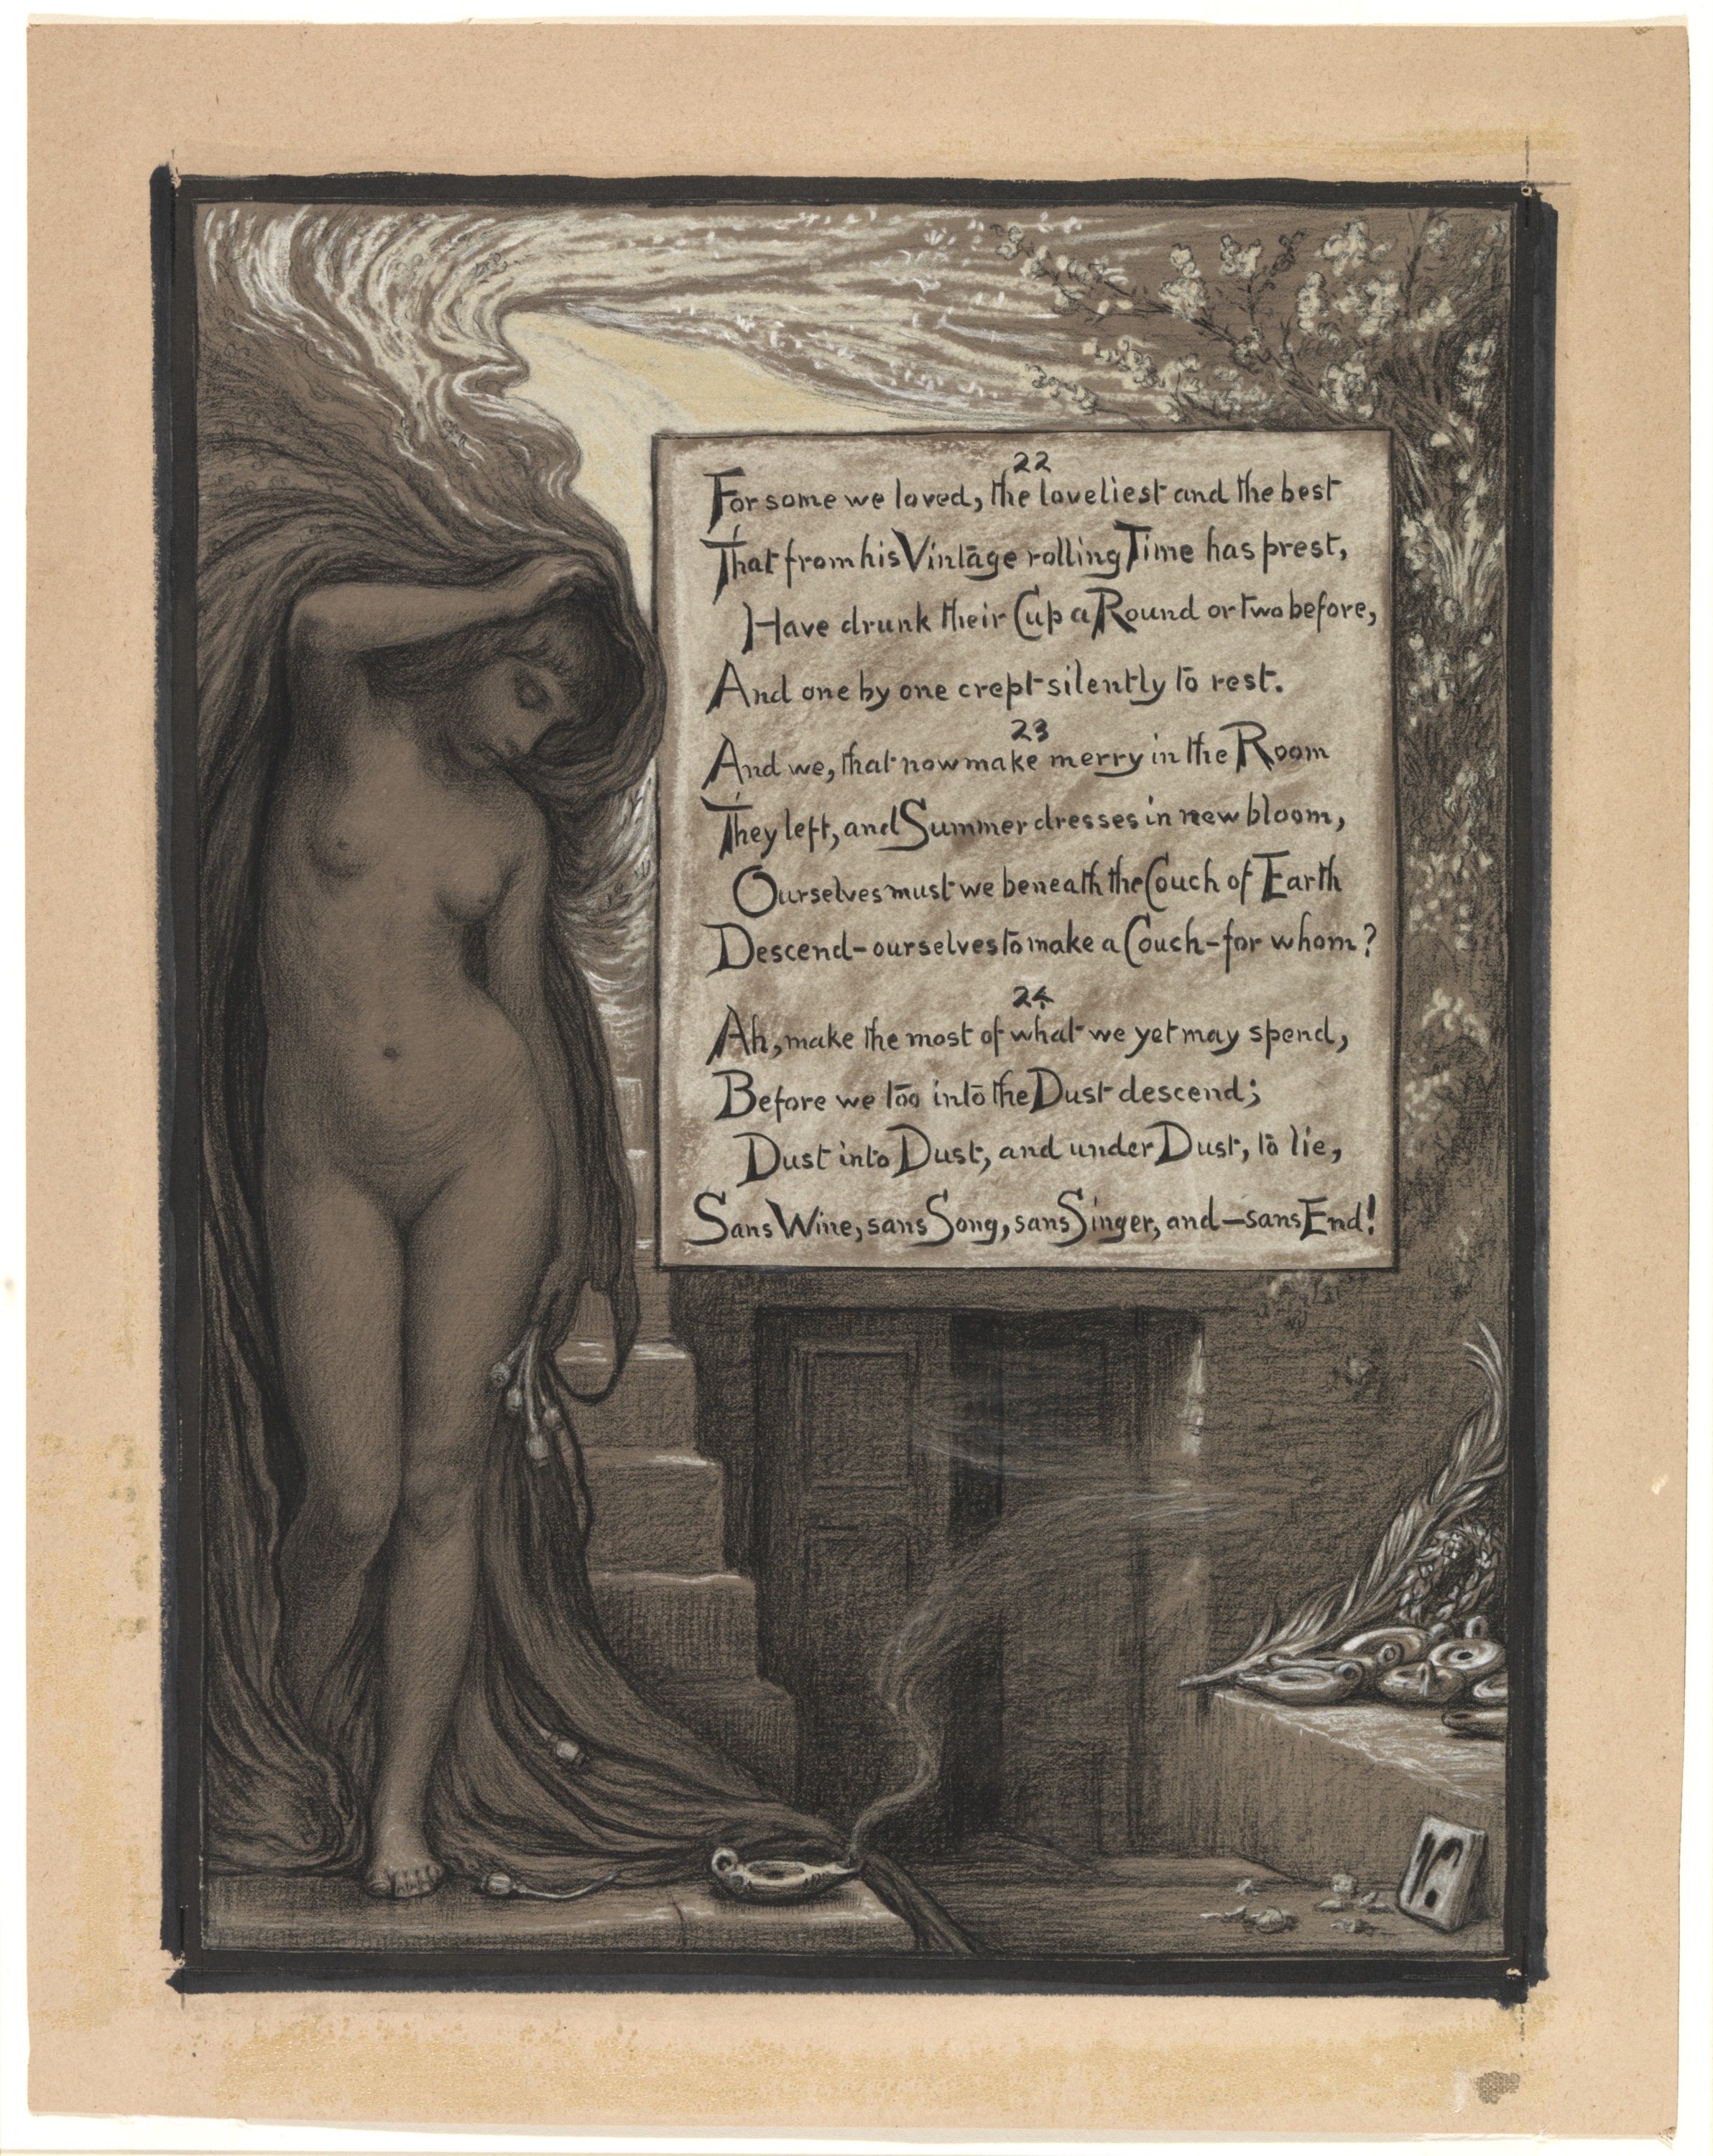 22
For some we loved, the loveliest and the best
That from his Vintage rolling Time has prest,
Have drunk their Cup a Round or two before,
And one by one crept silently to rest.
23
And we, that now make merry in the Room
They left, and Summer dresses in new bloom,
Ourselves must we beneath the Couch of Earth
Descend–ourselves to make a Couch–for whom?
24
Ah, make the most of what we yet may spend,
Before we too into the Dust descend;
Dust into Dust, and under Dust, to lie,
Sans Wine, sans Song, sans Singer, and–sans End!